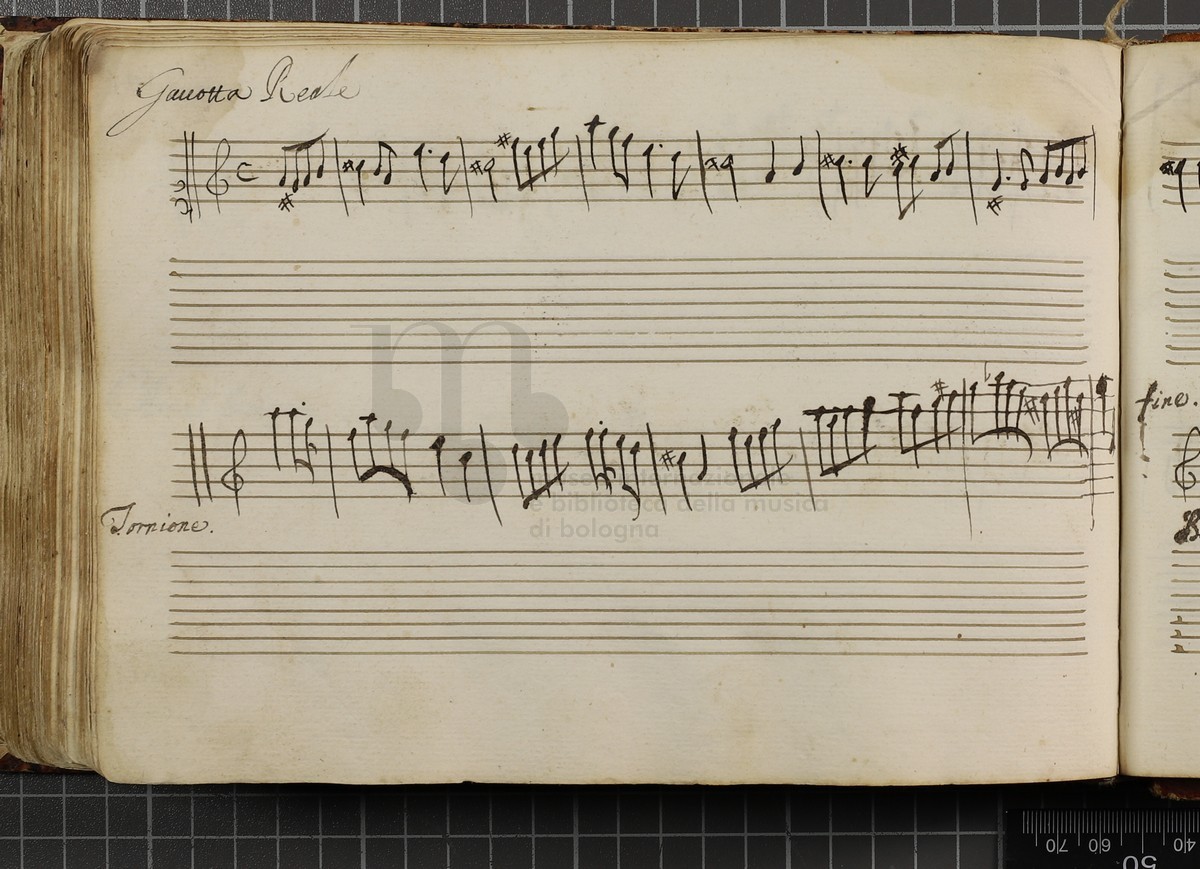 Gauotta Reale
fine.
Tornione.
museo internazionale
e biblioteca della musica
di bologna
70 60 50 40